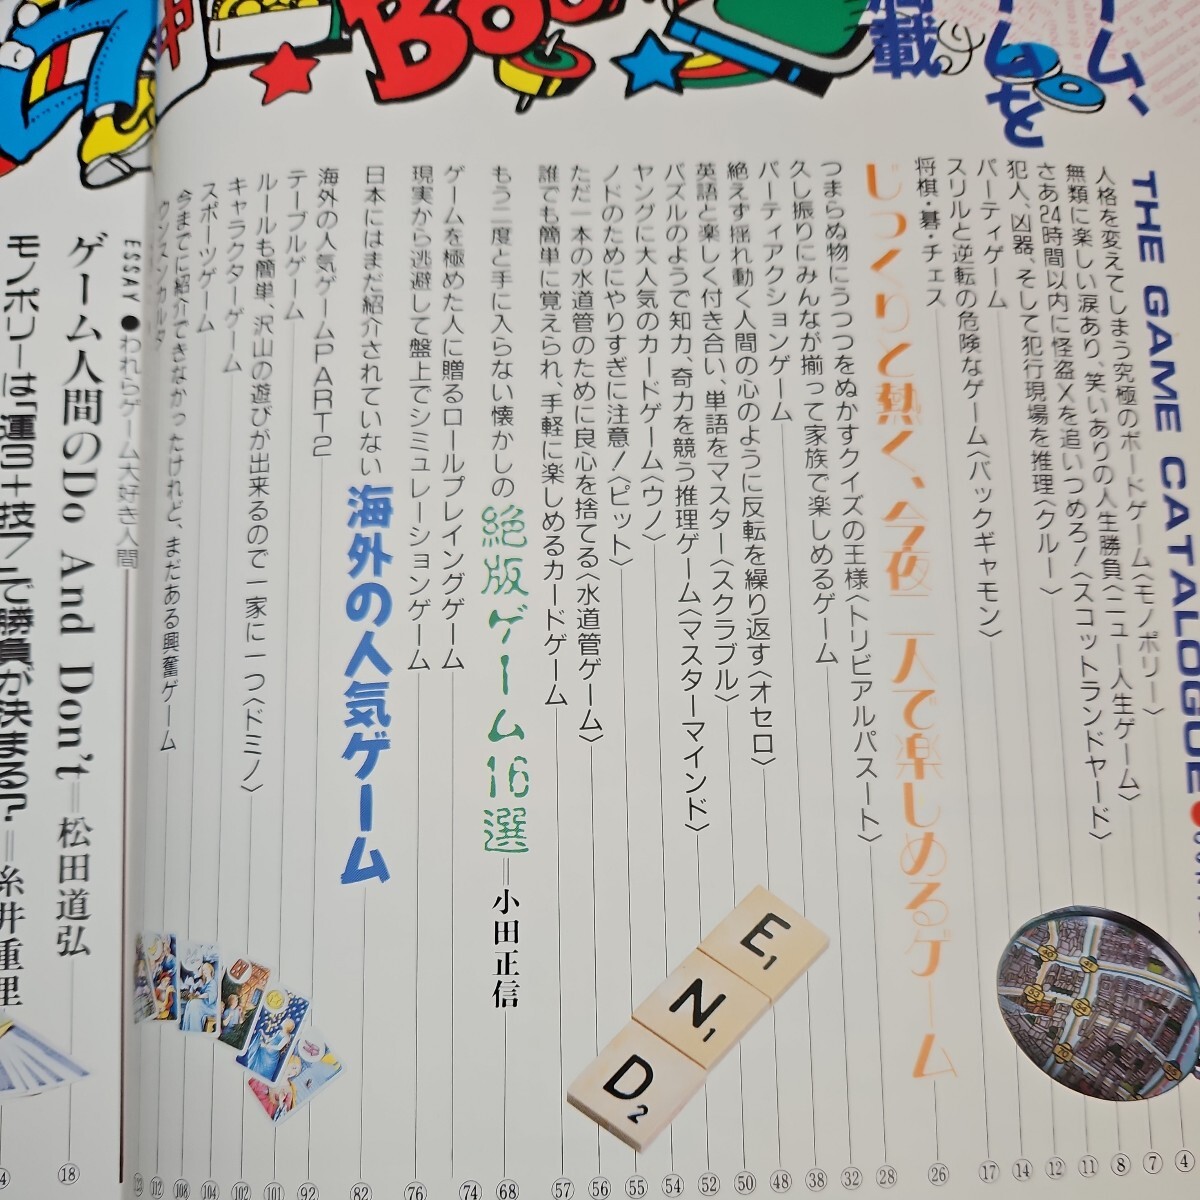 ーム、
ームを
載
BOO
THE GAME CATALOGUE●
人格を変えてしまう究極のボードゲーム〈モノポリー〉
無類に楽しい涙あり、笑いありの人生勝負〈ニュー人生ゲーム〉
さあ24時間以内に怪盗Xを追いつめろ!〈スコットランドヤード〉
犯人、凶器、そして犯行現場を推理〈クルー〉
パーティゲーム
スリルと逆転の危険なゲーム〈バックギャモン〉
将棋・碁・チェス
じっくりと熱く、今夜二人で楽しめるゲーム
つまらぬ物にうつつをぬかすクイズの王様〈トリビアルパスート〉
久し振りにみんなが揃って家族で楽しめるゲーム
パーティアクションゲーム
絶えず揺れ動く人間の心のように反転を繰り返す〈オセロ〉
英語と楽しく付き合い、単語をマスター〈スクラブル〉
パズルのようで知力、奇力を競う推理ゲーム〈マスターマインド〉
ヤングに大人気のカードゲーム〈ウノ〉
ノドのためにやりすぎに注意!〈ピット〉
ただ一本の水道管のために良心を捨てる〈水道管ゲーム〉
誰でも簡単に覚えられ、手軽に楽しめるカードゲーム
もう二度と手に入らない懐かしの絶版ゲーム16選=小田正信
ゲームを極めた人に贈るロールプレイングゲーム
現実から逃避して盤上でシミュレーションゲーム
日本にはまだ紹介されていない海外の人気ゲーム
海外の人気ゲームPART2
テーブルゲーム
ルールも簡単、沢山の遊びが出来るので一家に一つ〈ドミノ〉
キャラクターゲーム
スポーツゲーム
今までに紹介できなかったけれど、まだある興奮ゲーム
ウンスンカルタ
ESSAY●われらゲーム大好き人間
ゲーム人間のDo And Don't=松田道弘
モノポリーは「運3+技7」で勝負が決まる?=糸井重里
E1
N1
D2
4
7
8
11
12
14
17
26
28
32
38
48
50
52
54
55
56
57
68
74
76
82
92
101
102
104
108
112
123
18
4